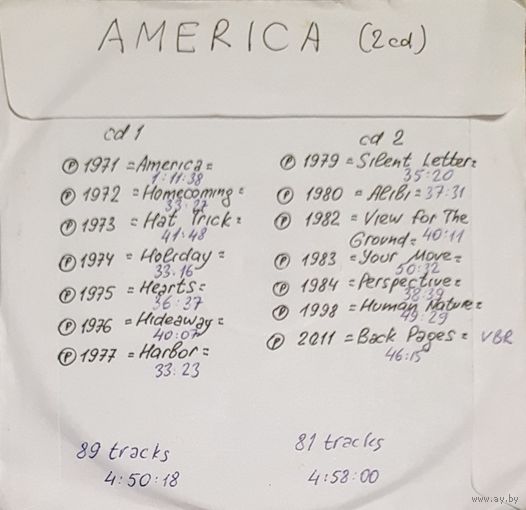 AMERICA (2cd)
cd 1
Ⓟ 1971 = America =
1:11:38
Ⓟ 1972 = Homecoming =
33:27
Ⓟ 1973 = Hat Trick =
41:48
Ⓟ 1974 = Holiday =
33.16
Ⓟ 1975 = Hearts =
36:37
Ⓟ 1976 = Hideaway =
40:07
Ⓟ 1977 = Harbor =
33:23
89 tracks
4:50:18
cd 2
Ⓟ 1979 = Silent Letter =
35:20
Ⓟ 1980 = Alibi = 37:31
Ⓟ 1982 = View for The
Ground = 40:11
Ⓟ 1983 = Your Move =
50:32
Ⓟ 1984 = Perspective =
38:39
Ⓟ 1998 = Human Nature =
49:29
Ⓟ 2011 = Back Pages = VBR
46:15
81 tracks
4:58:00
www.ay.by